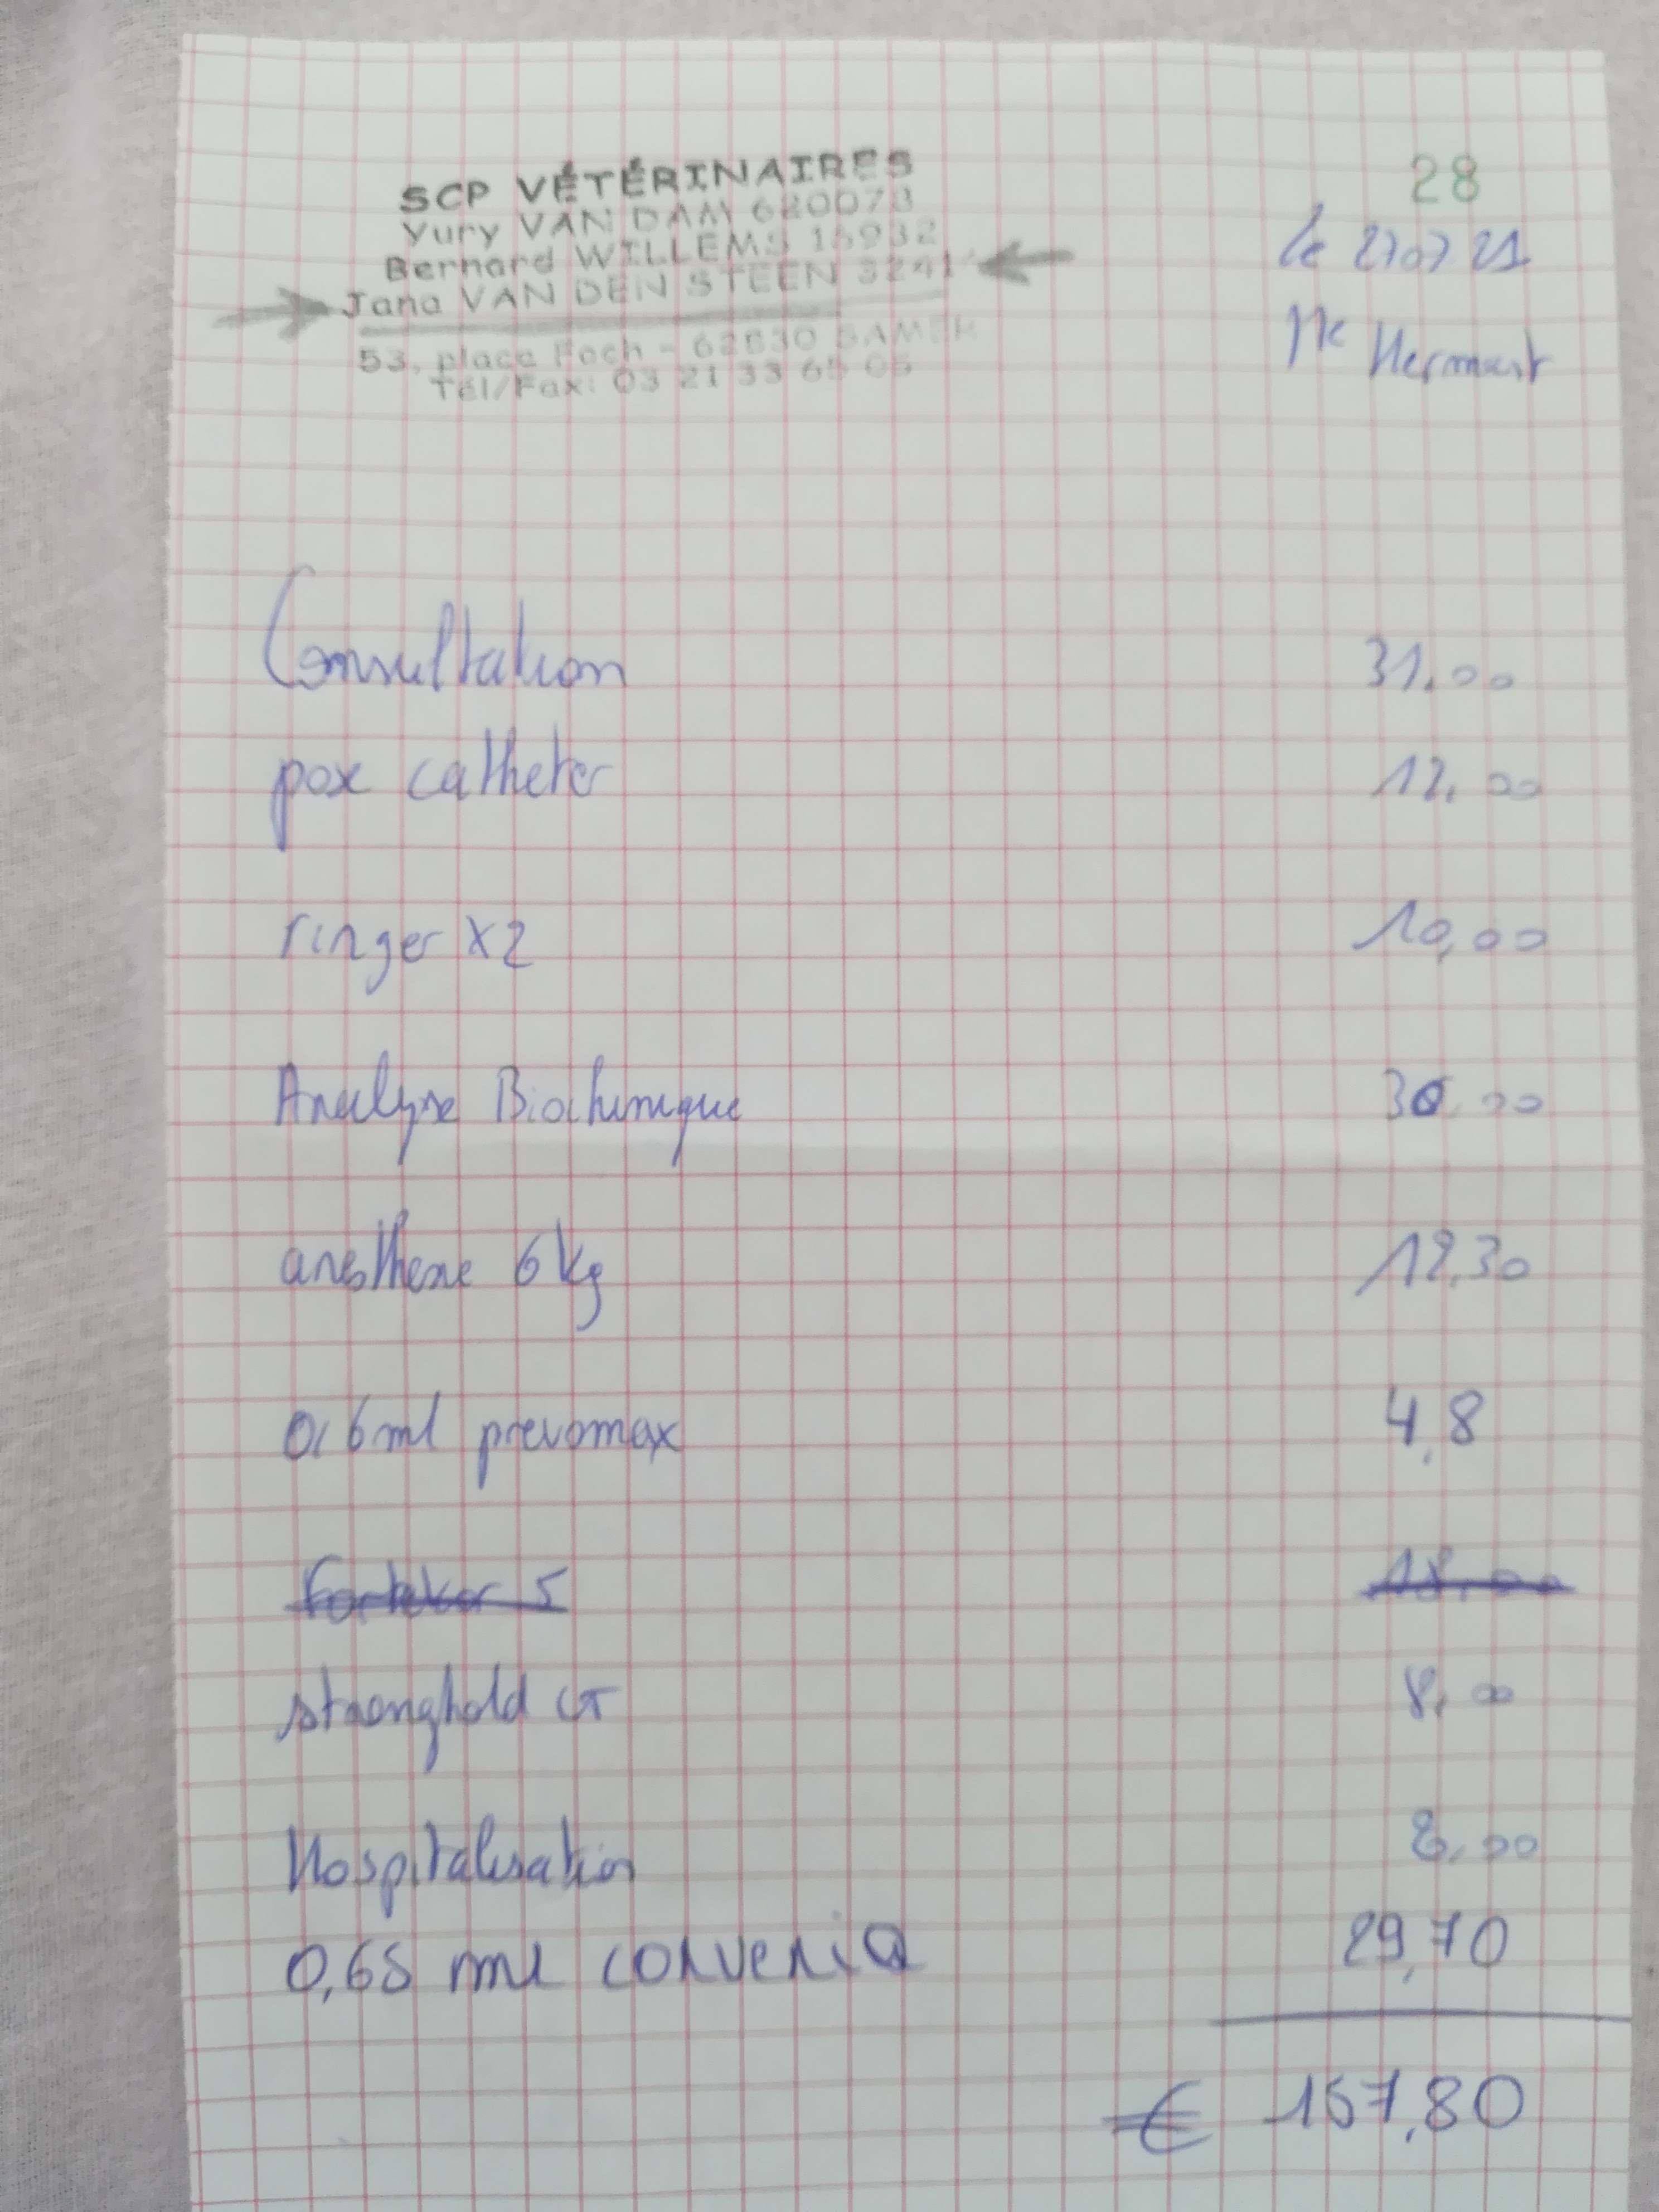 SCP VÉTÉRINAIRES
28
Yury VAN DAM 620073
le 270721
Bernard WILLEMS 15932
Jana VAN DEN STEEN 3241
Hermant
53, place Foch - 62830 SAMER
Tél/Fax: 03 21 33 65 05
Consultation 31,00
pose catheter 12,00
ringer x2 10,00
Analyse Biochimique 36,00
anesthesie 6kg 18,30
0,6ml prevomax 4,8
Fortekor 5 18,00
stronghold CT 8,00
Hospitalisation 8,00
0,65 ml convenia 29,70
€ 157,80